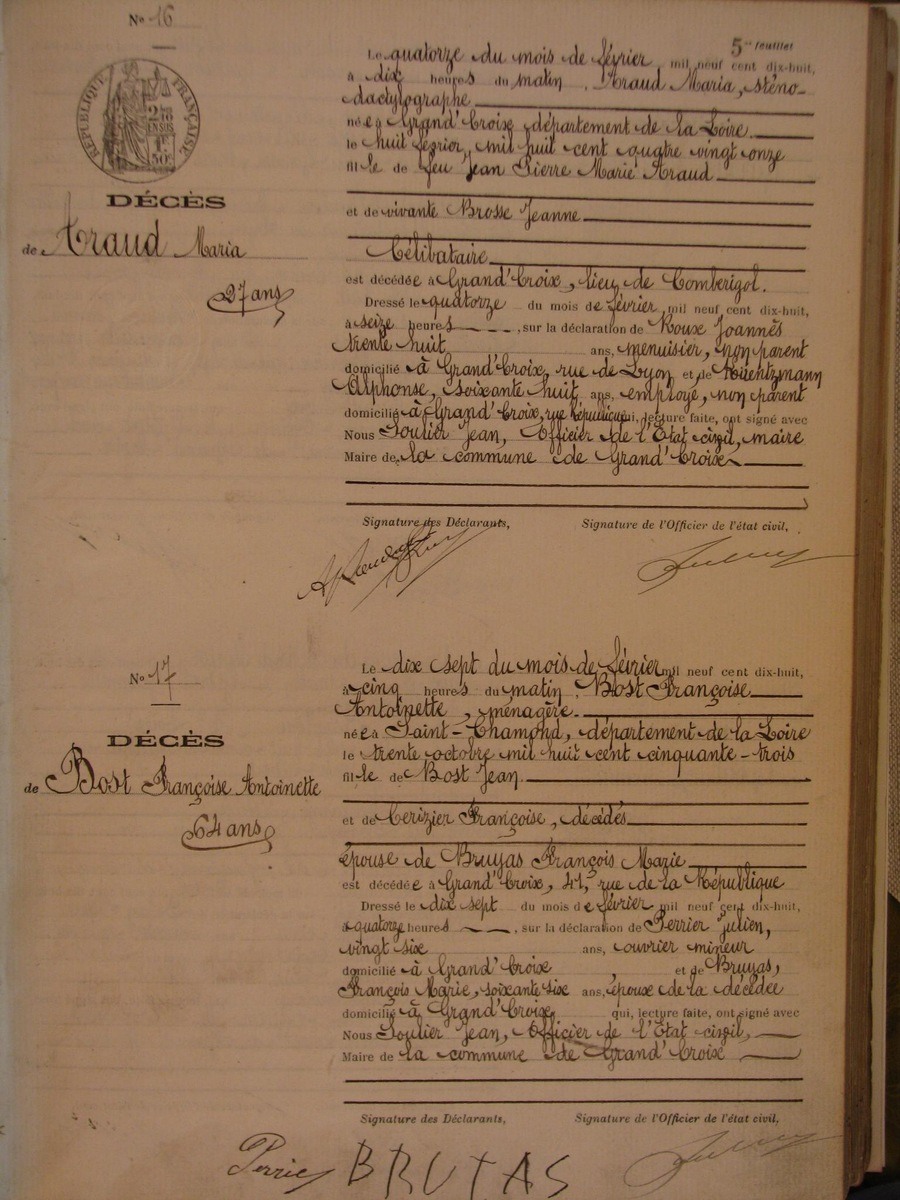 N° 16
5me feuillet
RÉPUBLIQUE FRANÇAISE
DÉCÈS
de Araud Maria
27 ans
Le quatorze du mois de février mil neuf cent dix-huit,
à dix heures du matin. Araud Maria, sténo-
dactylographe
née à Grand'Croix département de la Loire
le huit février, mil huit cent quatre vingt onze
fille de feu Jean Pierre Marie Araud
et de vivante Brosse Jeanne
Célibataire
est décédée à Grand'Croix, lieu de Comberigol.
Dressé le quatorze du mois de février mil neuf cent dix-huit,
à seize heures, sur la déclaration de Roux Joannès
trente huit ans, menuisier, non parent
domicilié à Grand'Croix, rue de Lyon et de Kuentzmann
Alphonse, soixante huit ans, employé, non parent
domicilié à Grand'Croix, rue République qui, lecture faite, ont signé avec
Nous Soulier Jean, Officier de l'Etat civil, maire
Maire de la commune de Grand'Croix
Signature des Déclarants,
Signature de l'Officier de l'état civil,
N° 17
DÉCÈS
de Bost Françoise Antoinette
64 ans
Le dix sept du mois de février mil neuf cent dix-huit,
à cinq heures du matin. Bost Françoise
Antoinette, ménagère.
née à Saint-Chamond, département de la Loire
le trente octobre mil huit cent cinquante-trois
fille de Bost Jean
et de Cerizier Françoise, décédés
épouse de Bruyas François Marie
est décédée à Grand'Croix, 41, rue de la République
Dressé le dix sept du mois de février mil neuf cent dix-huit,
à quatorze heures, sur la déclaration de Perrier Julien,
vingt six ans, ouvrier mineur
domicilié à Grand'Croix et de Bruyas,
François Marie, soixante six ans, épouse de la décédée
domicilié à Grand'Croix, qui, lecture faite, ont signé avec
Nous Soulier Jean, Officier de l'Etat civil,
Maire de la commune de Grand'Croix
Signature des Déclarants,
Signature de l'Officier de l'état civil,
BRUYAS